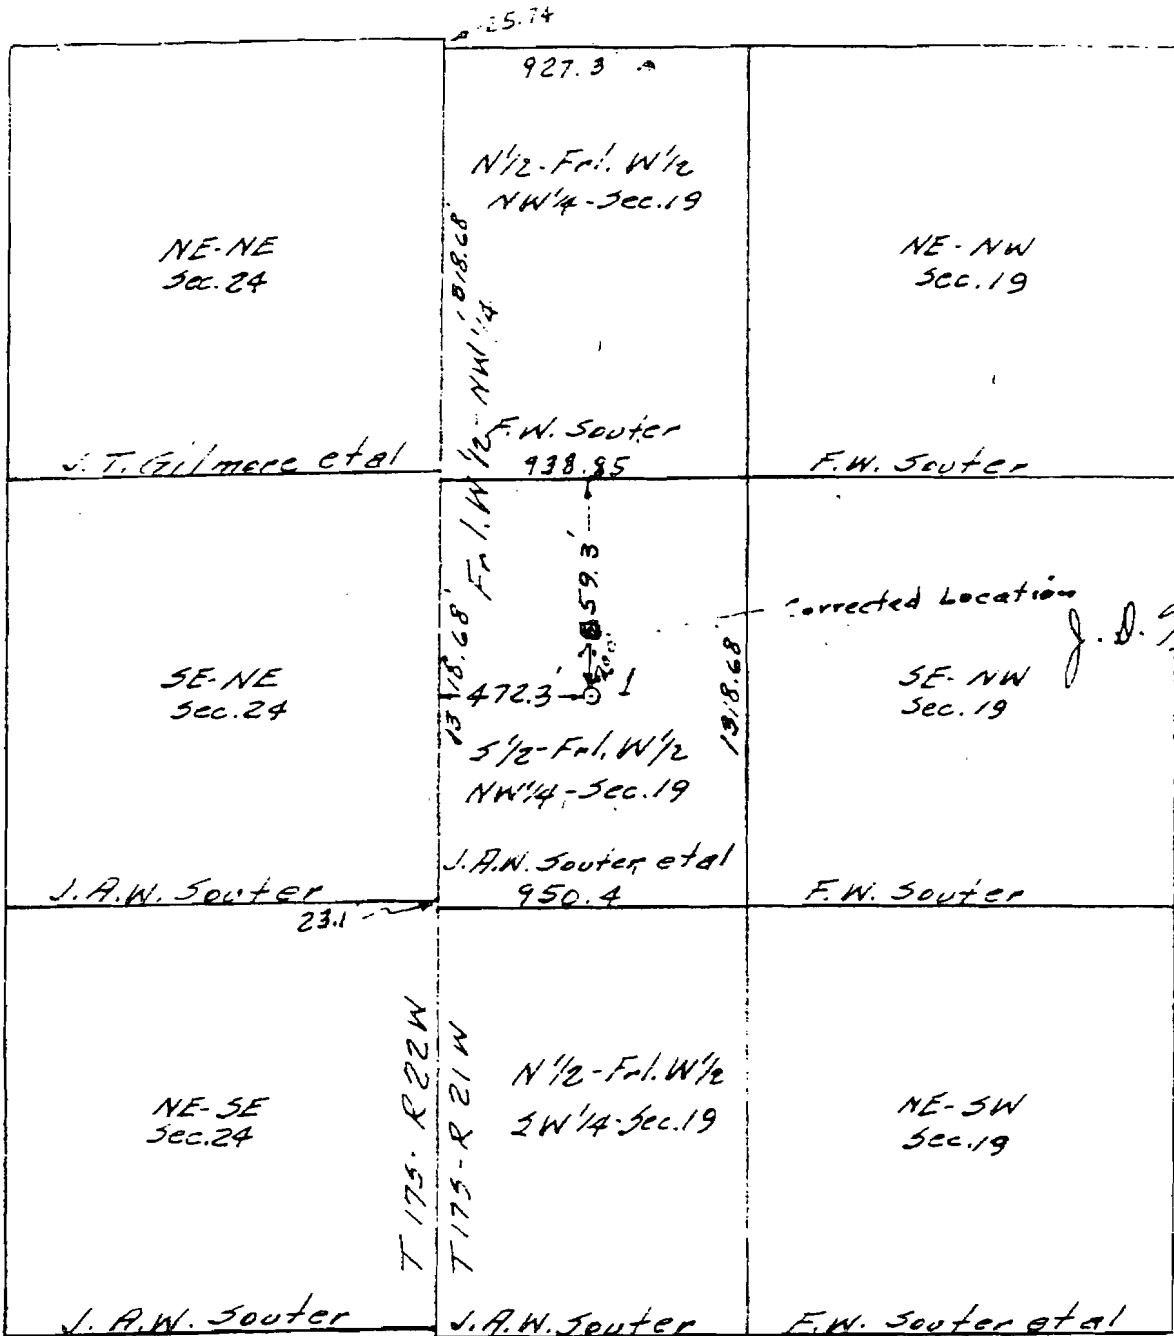 25.74
927.3
N 1/2 - Frl. W 1/2
NW 1/4 - Sec. 19
NE-NE
Sec. 24
NE-NW
Sec. 19
Frl. W 1/2 - NW 1/4
J. T. Gilmore et al
F.W. Souter
938.85
F.W. Souter
59.3'
Corrected Location
J. D.
SE-NE
Sec. 24
1318.68'
472.3'
1
1318.68
SE-NW
Sec. 19
S 1/2 - Frl. W 1/2
NW 1/4 - Sec. 19
J.A.W. Souter
J.A.W. Souter et al
950.4
F.W. Souter
23.1
T 17S - R 22 W
T 17S - R 21 W
NE-SE
Sec. 24
N 1/2 - Frl. W 1/2
SW 1/4 - Sec. 19
NE-SW
Sec. 19
J.A.W. Souter
J.A.W. Souter
F.W. Souter et al